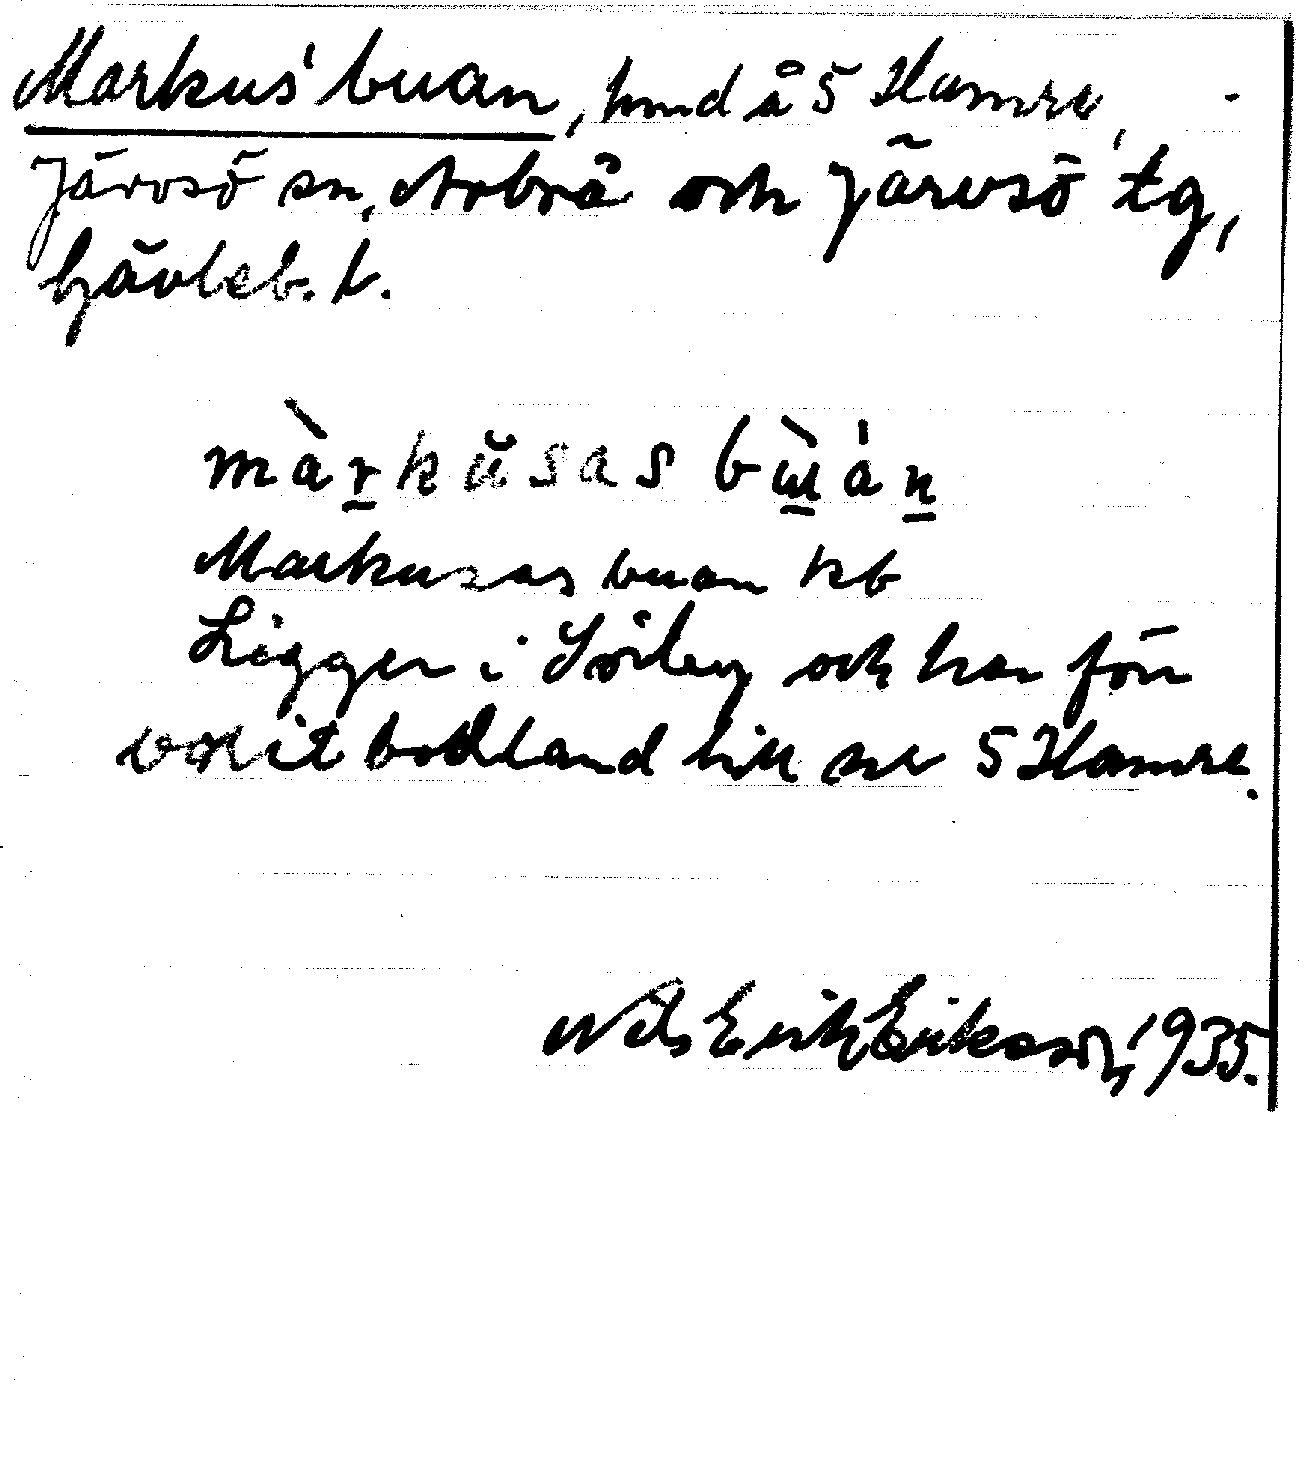 Markus' buan, hmd å 5 Hamre,
Järvsö sn, Arbrå och Järvsö tg,
Gävleb. l.
màrkŭsas bɯ̀án
Markusas buan kb
Ligger i Sörbey och har förr
varit bodland till nr 5 Hamre.
Nils Erik Erikson, 1935.